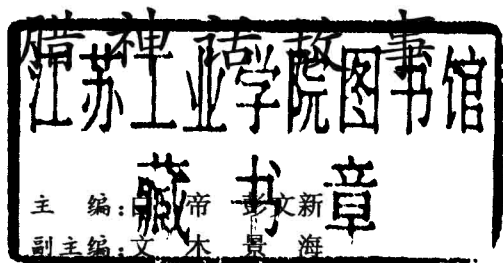 江苏工业学院图书馆
藏书章
主 编：白 帝 彭文新
副主编：文 木 景 海